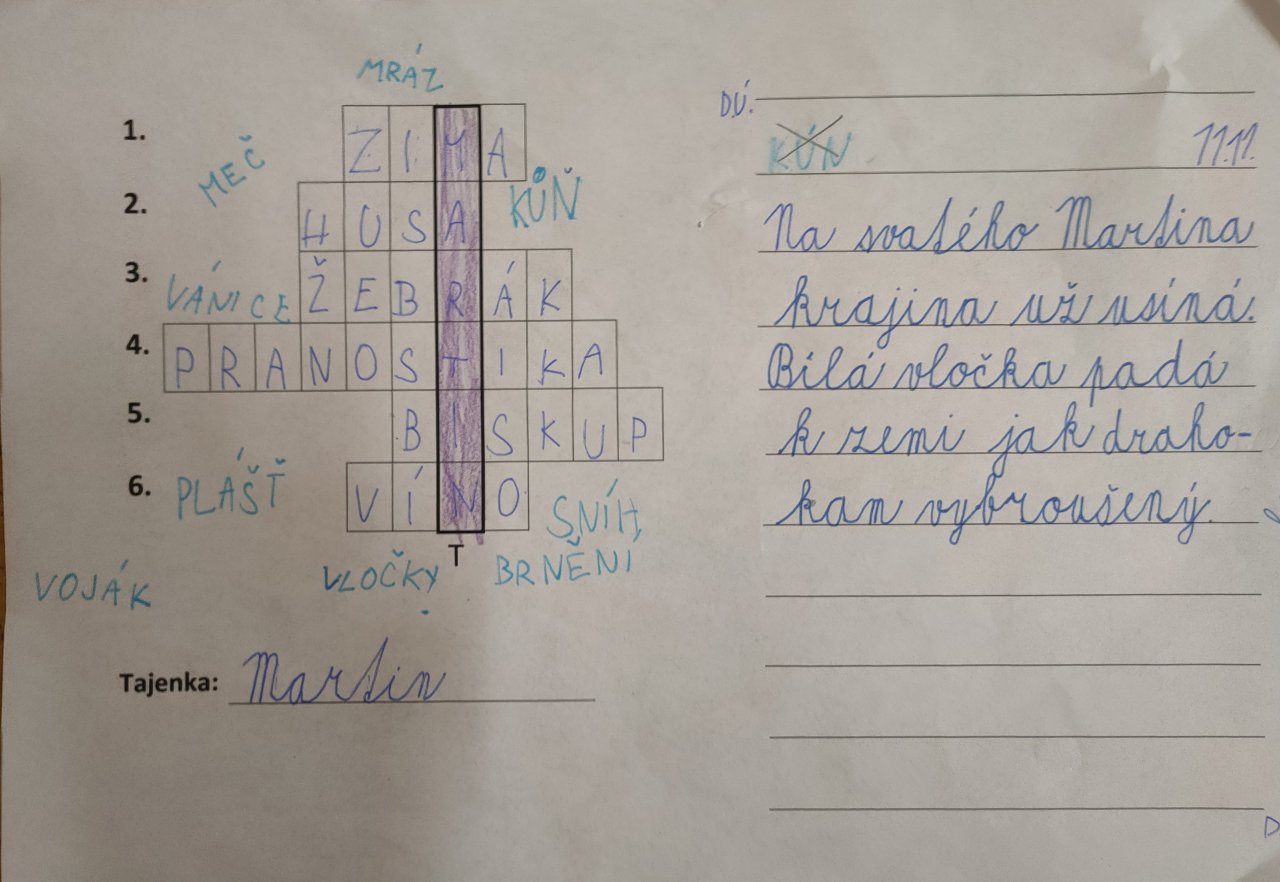 MRÁZ
1. ZIMA
MEČ
2. HUSA
KŮŇ
3. ŽEBRÁK
VÁNICE
4. PRANOSTIKA
5. BISKUP
6. VÍNO
PLÁŠŤ
SNÍH,
T
VLOČKY
BRNĚNI
VOJÁK
Tajenka: Martin
DÚ.
KŮŇ 11.11.
Na svatého Martina
krajina už usíná.
Bílá vločka padá
k zemi jak draho-
kam vybroušený.